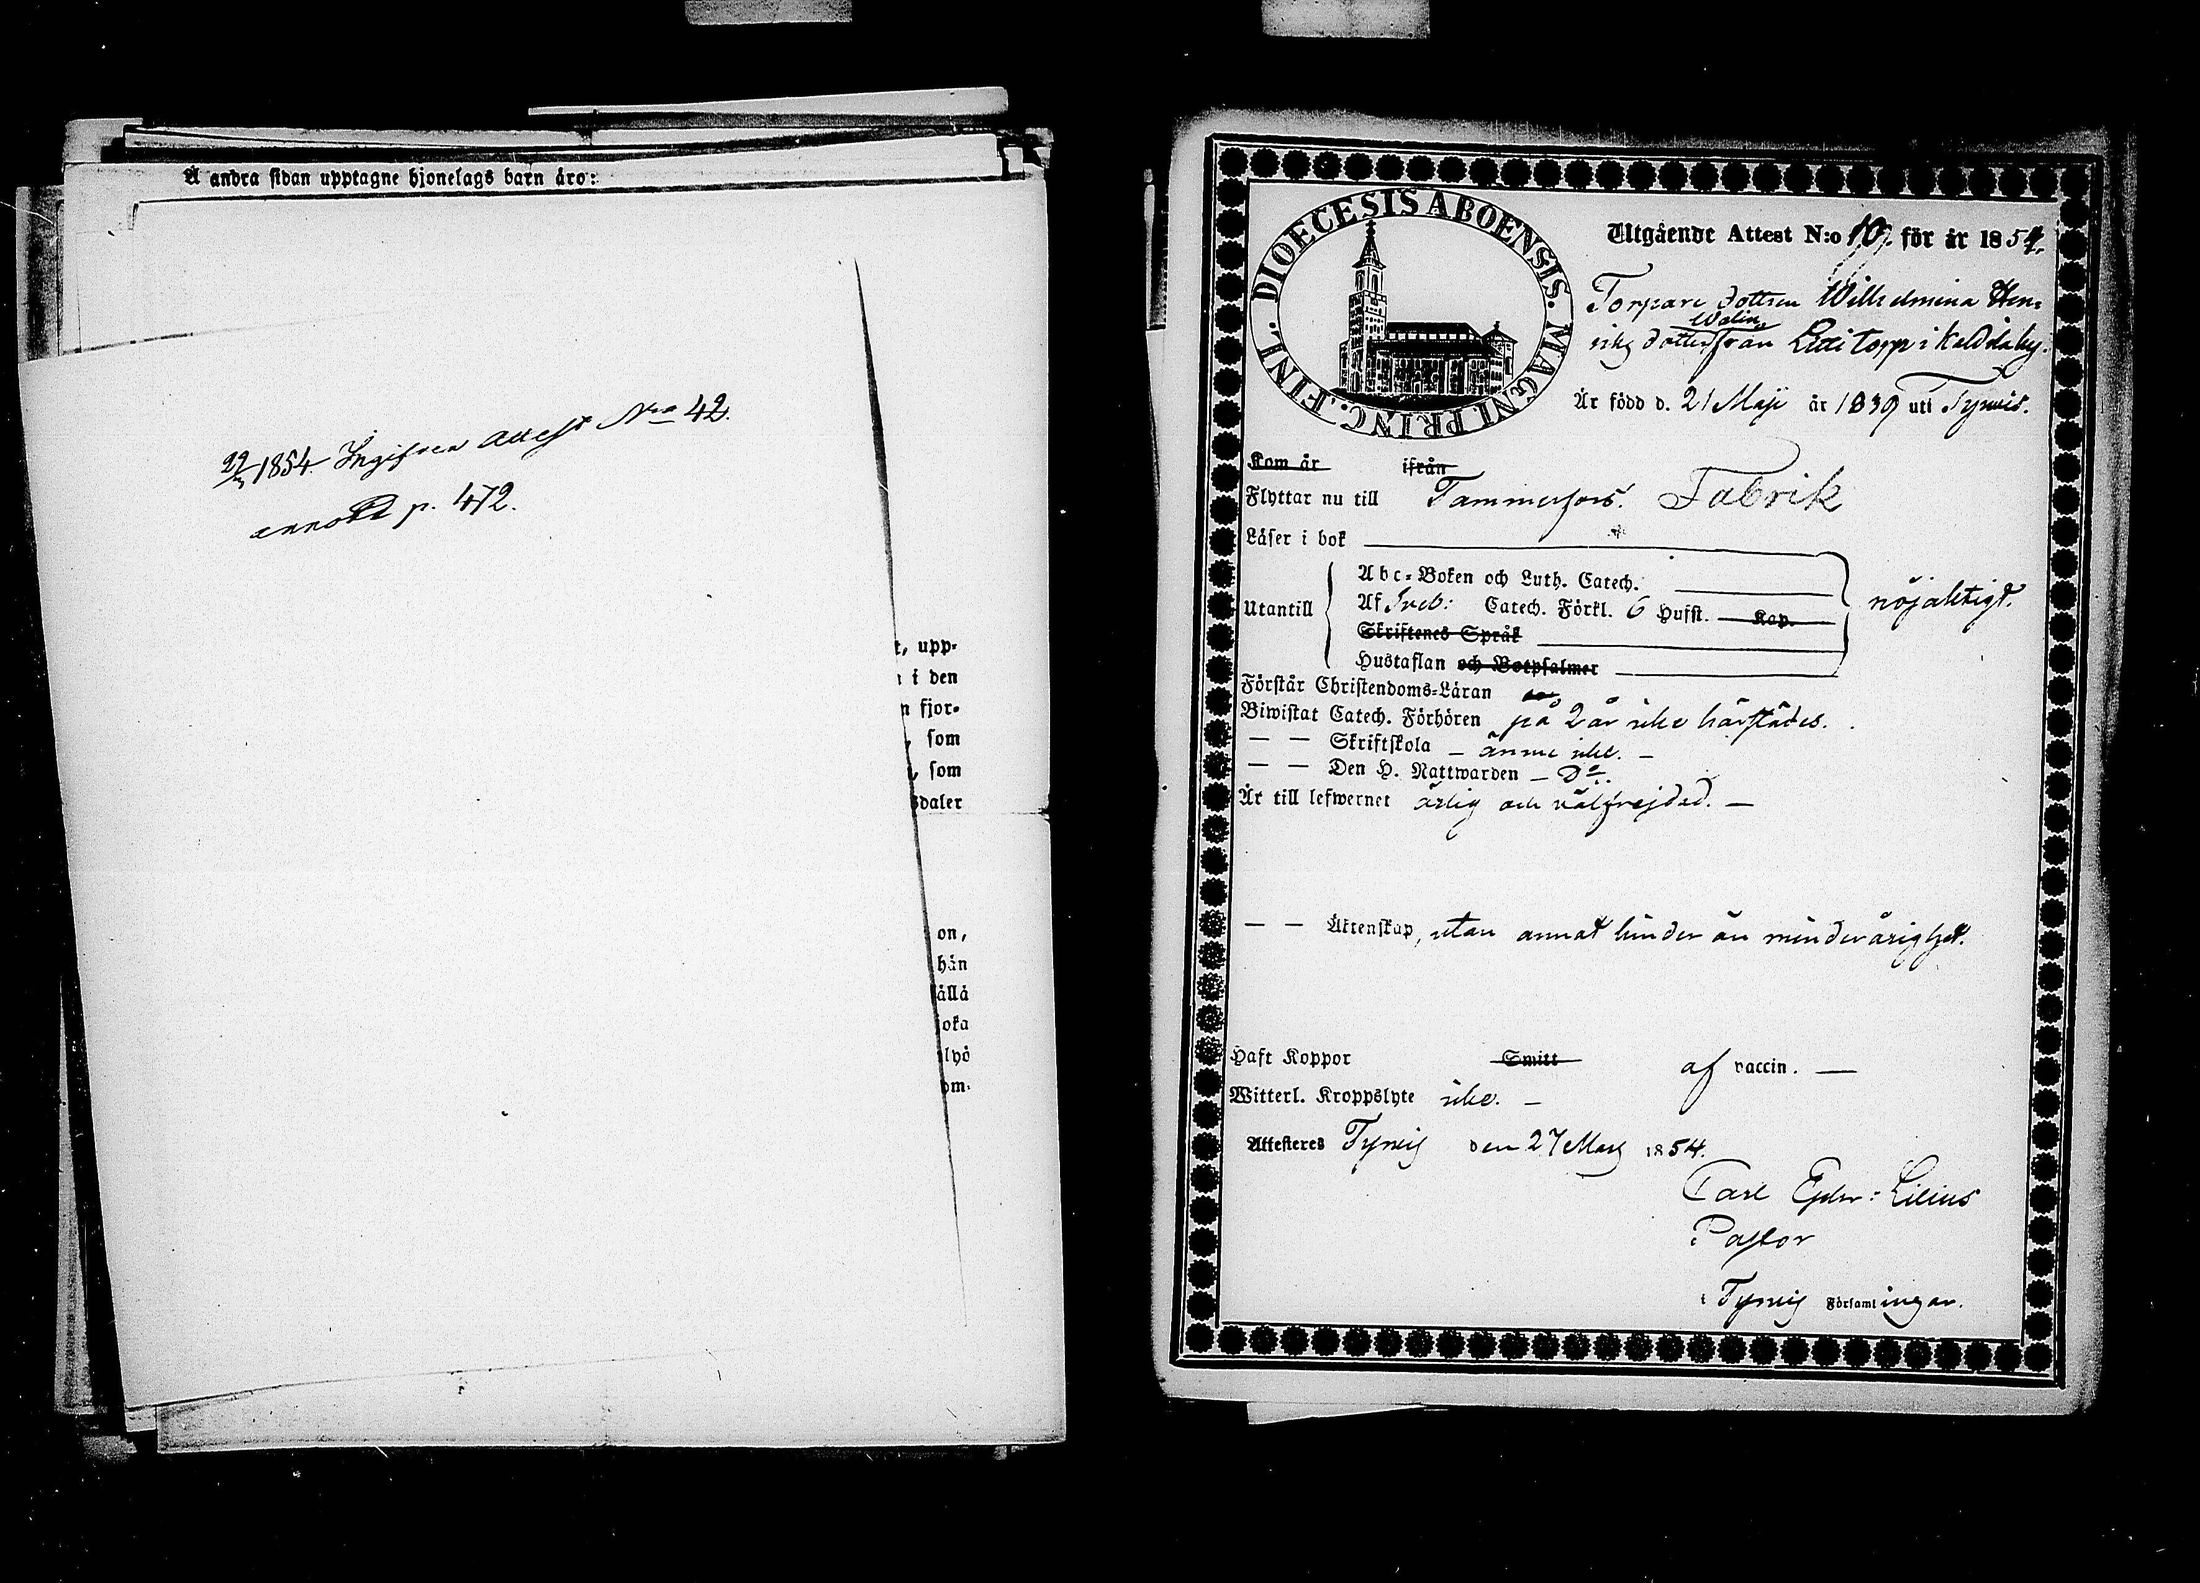 A andra sidan upptagne hjonelags barn äro:
1854. Ingifven Attest Nro 42.
annot p. 472.
t, upp-
i den
n fjor-
, som
, som
sdaler
on,
hän
ällä
joka
lyö
om-
DIOECESIS ABOENSIS. MAGNI PRINC. FINL.
Utgående Attest N:o 10. för år 1854.
Torpare dottren Wilhelmina Hen-
Walin
riks dotter från Letti torp i by.
Är född d. 21 Maji år 1839 uti Tyrvis.
Kom år ifrån
Flyttar nu till Tammerfors. Fabrik
Läser i bok
Abc-Boken och Luth. Catech.
Utantill Af Sveb: Catech. Förkl. 6 Hufst. Kap. nöjaktigt.
Skriftenes Språk
Hustaflan och Botpsalmer
Förstår Christendoms-Läran
Biwistat Catech. Förhören på 2 år icke härstädes.
— — Skriftskola – ännu icke. –
— — Den H. Nattwarden – Do.
Är till lefwernet ärlig och välfrejdad. —
— — Äktenskap, utan annat hinder än minderårighet.
Haft Koppor Smitt af vaccin. —
Witterl. Kroppslyte icke. –
Attesteres Tyrvis den 27 Mars 1854.
Carl Lilius
Pastor
i Tyrvis Församlingar.